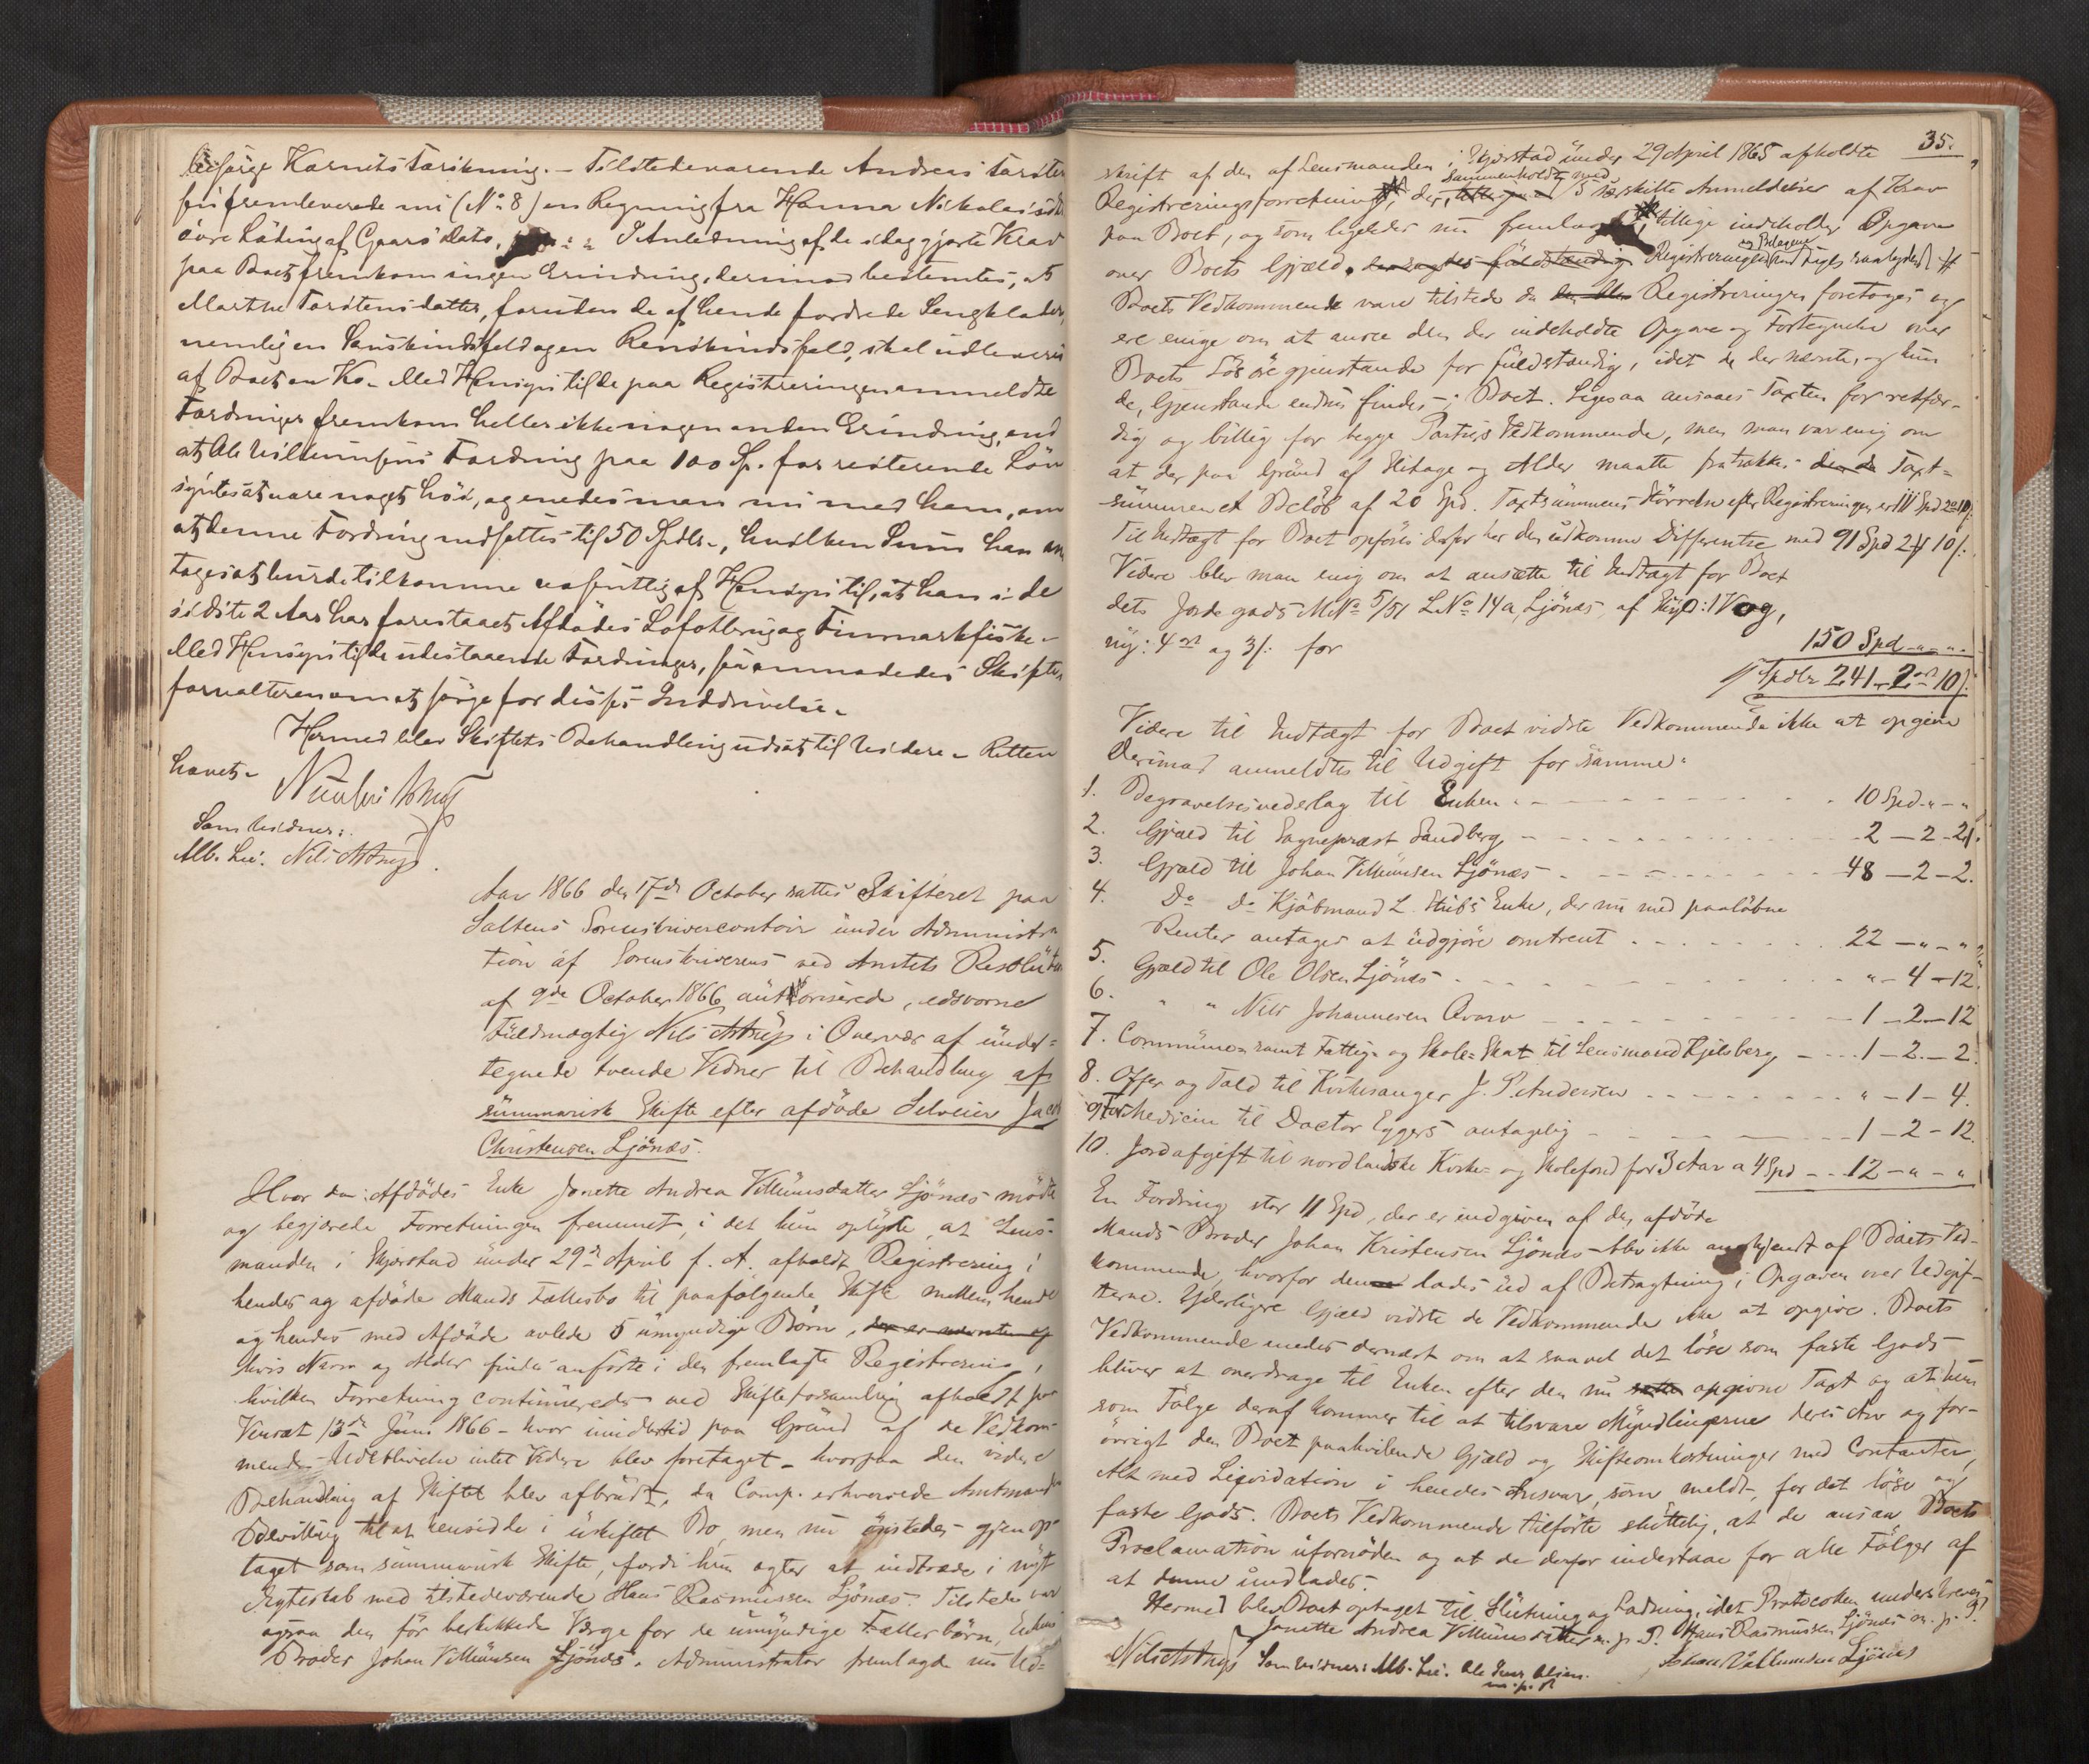 besörge Karnits Tarstening. – Tilstedeværende Andreas Torsten
sen fremleverede nu (No 8) en Regning fra Hanna Nikolaisdtr
övre Läding af Gaars Dato, I Anledning af de idag gjorte Krav
paa Boet fremkom ingen Erindring, derimod bestemtes, at
Marthe Torstensdatter, foruden de af hende fordrede Sengklæder,
nemlig en Sauskindsfeld og en Renskindsfeld, skal udleveres
af Boet en Ko. Med Hensyn til de paa Registreringen anmeldte
Fordringer fremkom heller ikke nogen anden Erindring, end
at Ole Villumsens Fordring paa 100 Sp. for resterende Lön
syntes at være noget höi, og enedes man nu med ham, om
at denne Fordring nedsættes til 50 Spdlr., hvilken Sum han an
toges at burde tilkomme navnlig af Hensyn til, at han i de
sidste 2 Aar har forestaaet Afdödes Lofotbrug og Finmarkfiske.
Med Hensyn til de udestaaende Fordringer, saa anmodedes Skifte
forvalteren om at sörge for disses Inddrivelse.
Hermed blev Skiftets Behandling udsat til Videre. – Retten
hævet.
Som Vidner:
Alb. Lie. Nils Astrup.
Aar 1866 den 17de October sattes Skifteret paa
Saltens Sorenskrivercontoir under Administra
tion af Sorenskriverens ved Amtets Resolution
af 9de October 1866 authoriserede, edsvorne
Fuldmægtig Nils Astrup i Overvær af under=
tegnede tvende Vidner til Behandling af
summarisk Skifte efter afdöde Selveier Jacob
Christensen Ljönæs.
Hvor da: Afdödes Enke Janette Andrea Villumsdatter Ljönæs mödte
og begjærede Forretningen fremmet, i det hun oplyste, at Lens-
manden i Skjerstad under 29de April f. A. afholdt Registrering i
hendes og afdöde Mands Fællesbo til paafölgende Skifte mellem hende
og hendes med Afdöde avlede 5 umyndige Börn,
hvis Navn og Alder findes anförte i den fremlagte Registrering,
hvilken Forretning continueredes ved Skifteforsamling afholdt paa
Venset 13de Juni 1866 – hvor imidlertid paa Grund af de Vedkom-
mendes Udeblivelse intet Videre blev foretaget – hvorpaa den videre
Behandling af Skiftet blev afbrudt, da Comp. erhvervede Amtmandens
Bevilling til at hensidde i uskiftet Bo, men nu önskedes gjenop-
taget som summarisk Skifte, fordi hun agter at indtræde i nyt
Ægteskab med tilstedeværende Hans Rasmussen Ljönæs. Tilstede var
ogsaa den för beskikkede Værge for de umyndige Fællesbörn, Enkens
Broder Johan Villumsen Ljönæs. Administrator fremlagde nu Ud=
35.
skrift af den af Lensmanden i Skjerstad under 29 April 1865 afholdte
Registreringsforretning, der, sammenholdt med 5 særskilte Anmeldelser af Krav
paa Boet, og som ligeledes nu fremlagdes, tillige indeholder Opgave
over Boets Gjæld. Registreringen og Bilagene
Boets Vedkommende vare tilstede da Registreringen foretoges og
ere enige om at ansee den der indeholdte Opgave og Fortegnelse over
Boets Lösöregjenstande for fuldstændig, idet de der nævnte, og kun
de, Gjenstande endnu findes i Boet. Ligesaa ansaaes Taxten for retfær-
dig og billig for begge Parters Vedkommende, men man var enig om
at der paa Grund af Slitage og Alder maatte fratrækkes Taxt=
summen et Belöb af 20 Spd. Taxtsummens Störrelse efter Registreringen er 111 Spd 2 10/.
Til Indtægt for Boet opföres derfor her den udkomne Differentse med 91 Spd 2 10/.
Videre blev man enig om at ansætte til Indtægt for Boet
dets Jordegods MNo 5/51 LNo 14a, Ljönæs, af Skyld: 1 Vog,
ny: 4 ort og 3/. for
150 Spd „ – „
Spdlr 241–2 ort 10/.
Videre til Indtægt for Boet vidste Vedkommende ikke at opgive
Derimod anmeldtes til Udgift for samme:
1. Begravelsesvederlag til Enken . . – – – – 10 Spd „ – „
2. Gjæld til Sogneprest Sandberg – – – – 2 – 2 – 21.
3. Gjæld til Johan Villumsen Ljönæs – – – – 48 – 2 – 2.
4. Do Do Kjöbmand L. Stubs Enke, der nu med paalöbne
Renter antages at udgjöre omtrent . – – – 22 – „ – „
5. Gjæld til Ole Olsen Ljönæs – – – – „ – 4 – 12.
6. „ „ Nils Johannesen Qvarv – – – – 1 – 2 – 12
7. Commune- samt Fattig- og Skole-Skat til Lensmand Kjelsberg – – 1 – 2 – 2.
8. Offer og Told til Kirkesanger J. P. Andersen – – – – „ – 1 – 4.
9. For Medicin til Doctor Eggers antagelig – – – – 1 – 2 – 12.
10. Jordafgift til nordlandske Kirke- og Skolefond for 3 Aar a 4 Spd – – 12 – „ – „
En Fordring stor 11 Spd, der er indgiven af den afdöde
Mands Broder Johan Kristensen Ljönæs blev ikke anerkjendt af Boets Ved-
kommende, hvorfor den lades ud af Betragtning i Opgaven over Udgif-
terne. Yderligere Gjæld vidste de Vedkommende ikke at opgive. Boets
Vedkommende enedes dernæst om at saavel det löse som faste Gods
bliver at overdrage til Enken efter den nu opgivne Taxt og at hun
som Fölge deraf kommer til at tilsvare Myndlingerne deres Arv og for-
övrigt den Boet paahvilende Gjæld og Skifteomkostninger med Contanter,
Alt med Liqvidation i hendes Ansvar, som meldt, for det löse og
faste Gods. Boets Vedkommende tilförte sluttelig, at de ansaa Boets
Proclamation ufornöden og at de derfor indestaae for alle Fölger af
at denne undlades.
Hermed blev Boet optaget til Slutning og Ladning, idet Protocollen underskreves
Janette Andrea Villumsdatter m. p. P. Hans Rasmussen Ljönæs m. p. P.
Nils Astrup Som Vidner: Alb. Lie. Ole Jens Olsen. Johan Villumsen Ljönæs
m. p. P.